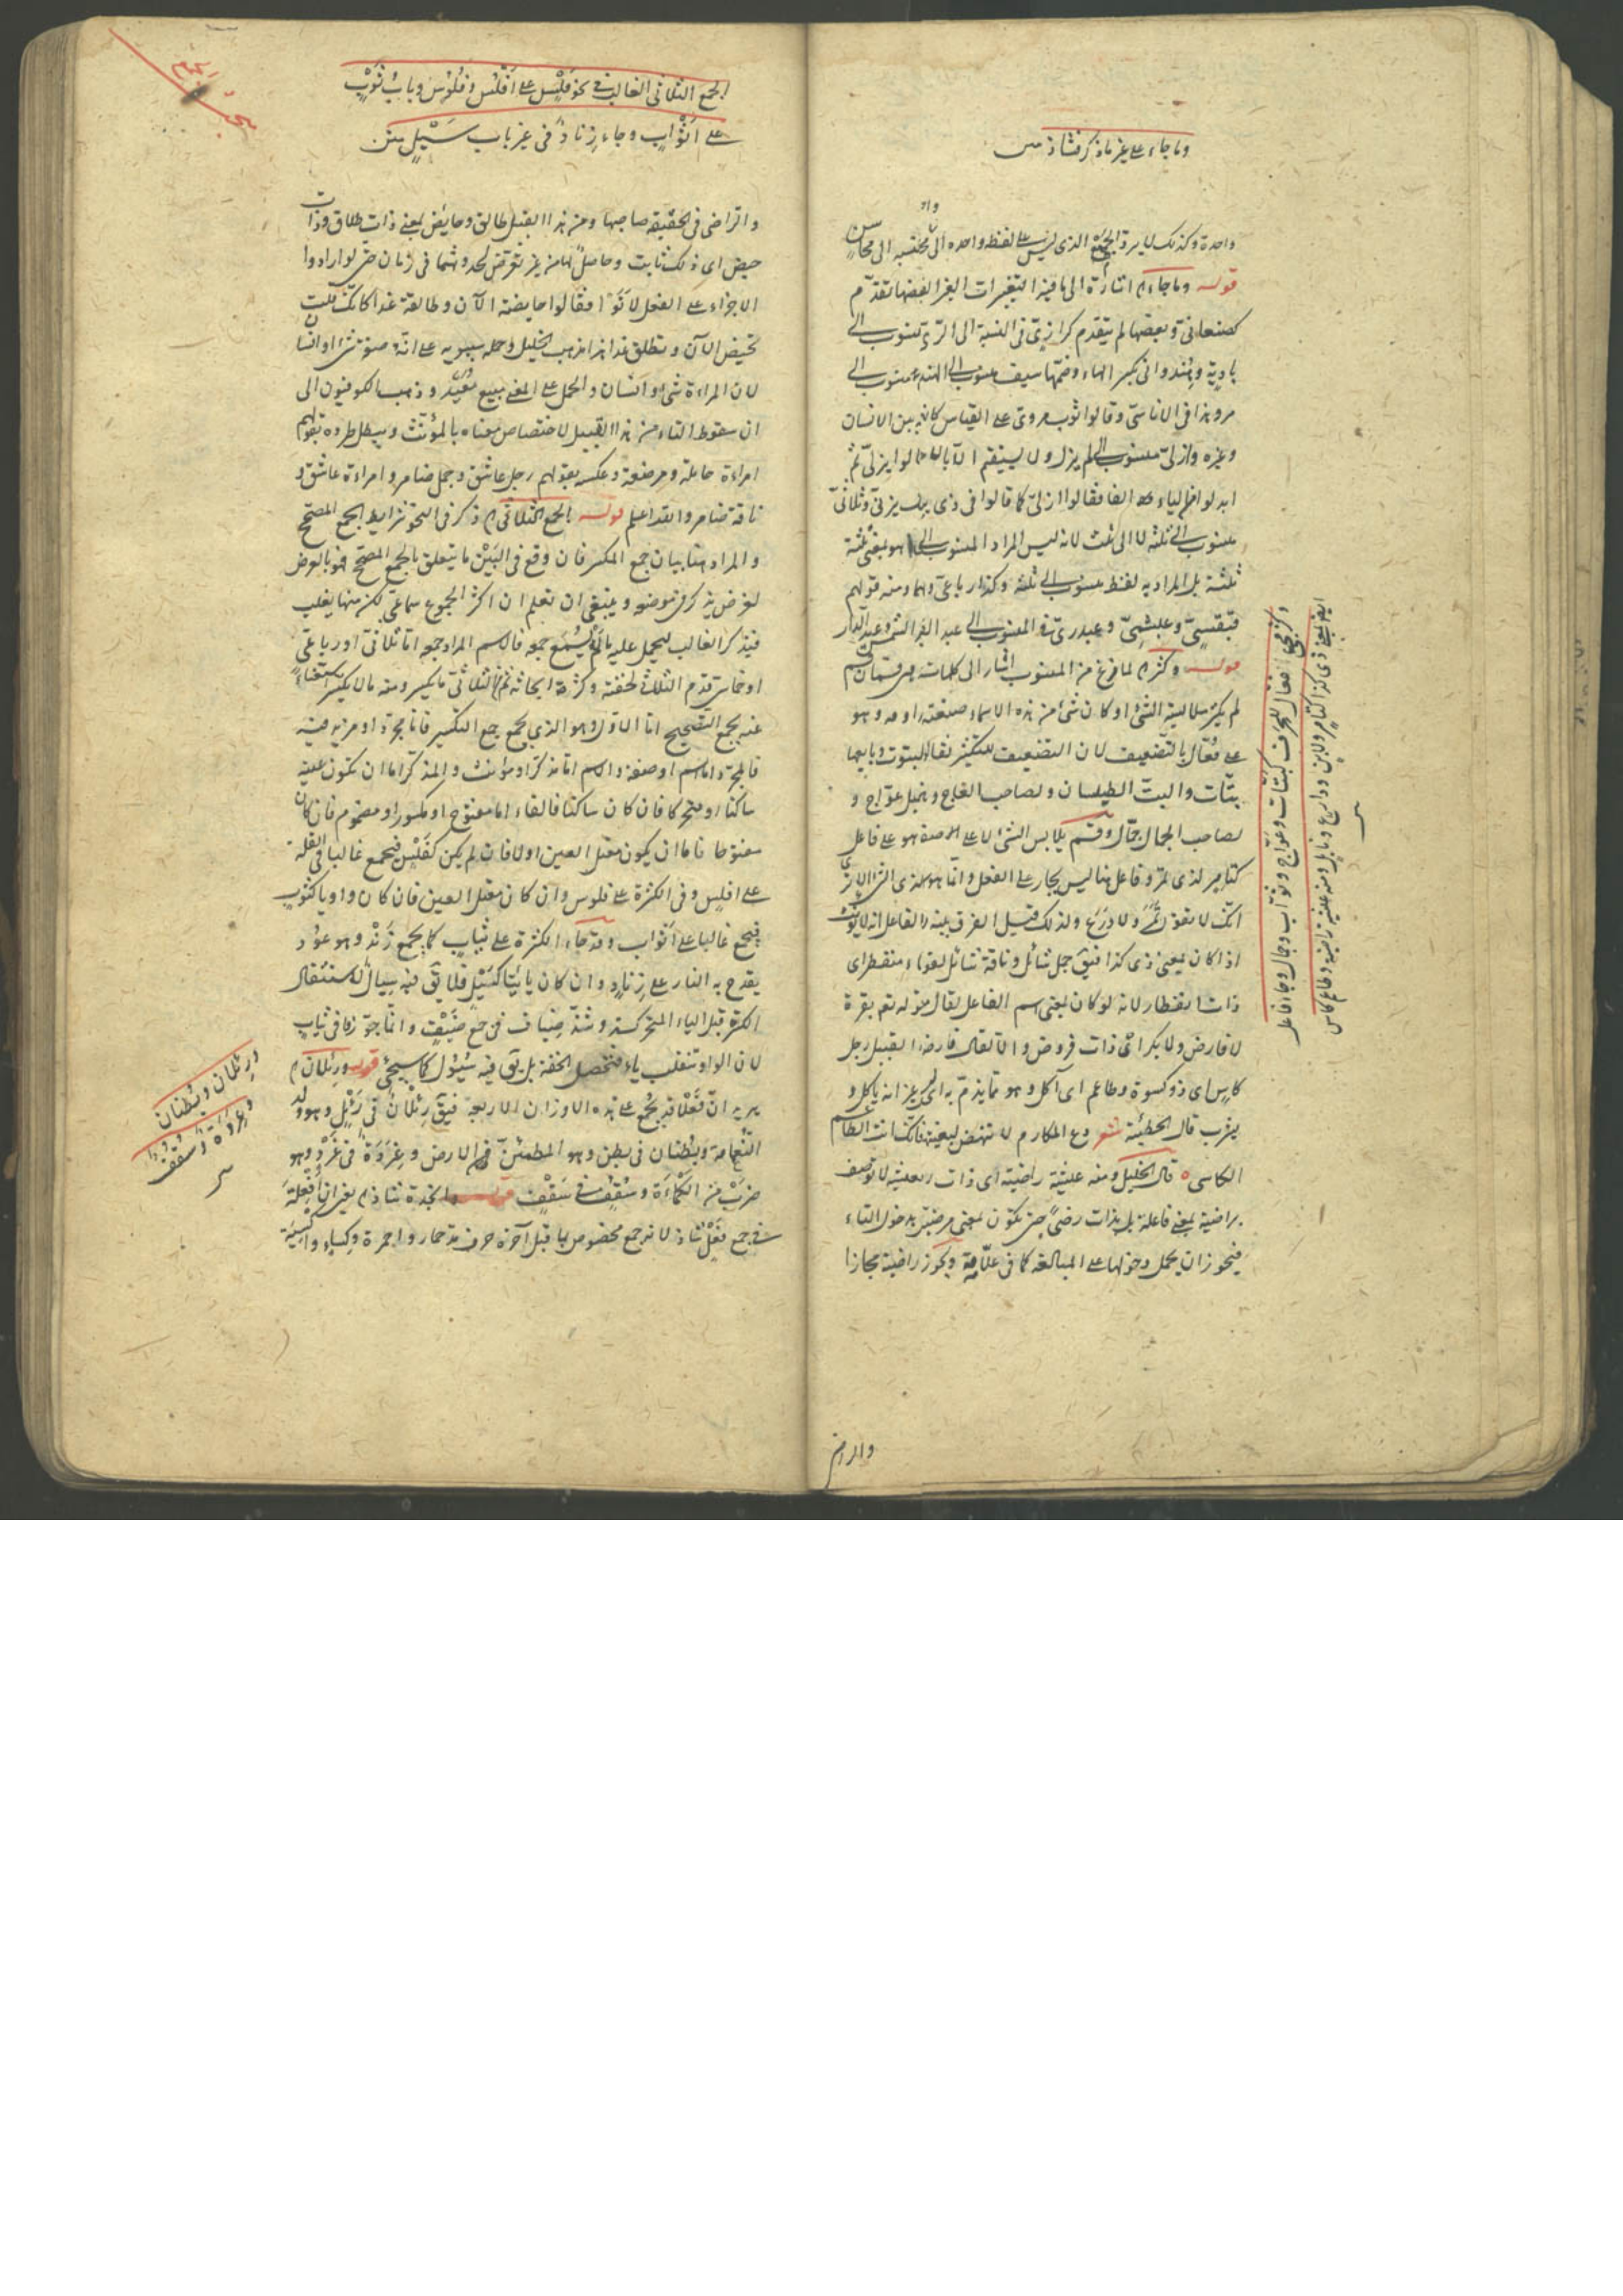 وما جاء على غير ما ذكر فشاذ
واحدة وكذلك لا يرد الجمع الذي ليس على لفظ واحده الى
قوله وما جاء اشارة الى باقية التغيرات الغير بعضها تقدم
كصنعاني وبعضها لم يتقدم كرازي في النسبة الى الري منسوب الى
بادية وهندواني بكسر الهاء وضمها سيف منسوب الى الهند منسوب الى
مرو هذا في الاناسي وقالوا ثوب مروي على القياس كانه بين الانسان
وغيره وازلي منسوب الى لم يزل ولا يستقيم الا قالوا يزلي ثم
ابدلوا الياء الفا فقالوا ازلي كما قالوا في ذي يزن يزني وثلاثي
منسوب الى ثلثة لا الى ثلث لانه ليس المراد المنسوب الى ما هو بمعنى ثلثة
ثلثة بل المراد به لفظ منسوب الى ثلثة وكذا رباعي ومنه قولهم
عبقسي وعبشمي وعبدري في المنسوب الى عبد القيس وعبد الدار
قوله وكثر لما فرغ من المنسوب اشار الى كلمات هي قسمان
لم يكن ملابسة الشئ او كان شئ من هذه الاسماء صنعته وهو
على فعال بالتضعيف لان التضعيف للتكثير يقال لبائع البتوت
بتات والبت الطيلسان ولصاحب العاج عواج و
لصاحب الجمال جمال وقسم يلابس الشئ لا على صفة هو على فاعل
كتامر لذي تمر وفاعل هنا ليس بجار على الفعل وانما هو
انك لا تقول تمر ولا درع ولذلك قيل الفرق بينه والفاعل انه لا يؤنث
اذا كان بمعنى ذي كذا فيق جمل شائل وناقة شائل السماء منفطر اي
ذات انفطار لانه لو كان بمعنى اسم الفاعل لقال منه قوله تعالى بقرة
لا فارض ولا بكر اي ذات فروض القبيل رجل
كاس اي ذو كسوة وطاعم اي آكل وهو مما يذم به اي غير انه ياكل و
يشرب قال الحطيئة شعر دع المكارم لا تنهض لبغيتها فانك انت الطاعم
الكاسي قال الخليل ومنه عيشة راضية اي ذات رضى لا توصف
براضية بمعنى فاعلة بل بذات رضى حتى تكون بمعنى مرضية دخول التاء
فيجوز ان يحمل دخولها على المبالغة كما في علامة ويجوز راضية مجازا
وكثر مجئ فعال للحرف كبتات وعواج وثواب وجمال وجاء فاعل
ايضا بمعنى ذي كذا كتامر ولابن ودارع ونابل ومنه عيشة راضية وطاعم كاس
والراض
الجمع الثلاثي الغالب في نحو فلس على افلس وفلوس وباب ثوب
على اثواب وجاء زناد في غير باب سيل
والراضي في الحقيقة صاحبها ومن هذا القبيل طالق وحايض بمعنى ذات طلاق وذات
حيض اي ذلك ثابت وحاصل لها من غير تعرض لحدوثهما في زمان حتى لو ارادوا
الاجراء على الفعل لاتوا فقالوا حايضة الآن وطالقة غدا كانك قلت
تحيض الآن وتطلق غدا هذا مذهب الخليل وحمله سيبويه على انه صفة شئ او انسان
لان المراءة شئ او انسان والحمل على المعنى وذهب الكوفيون الى
ان سقوط التاء من هذا القبيل لاختصاص معناه بالمؤنث ويبطل طرده بقولهم
امراءة حاملة ومرضعة وعكسه بقولهم رجل عاشق وجمل ضامر وامراءة عاشق و
ناقة ضامر والله اعلم قوله الجمع الثلاثي ذكر في النحو شرايط الجمع المصحح
والمراد هنا بيان جمع المكسر فان وقع في البين ما يتعلق بالجمع المصحح فهو بالعرض
لغرض يذكر في موضعه وينبغي ان تعلم ان اكثر الجموع سماعي لكن منها يغلب
فيذكر الغالب ليحمل عليه ما لم يسمع جمعه فالاسم المراد جمعه اما ثلاثي او رباعي
او خماسي قدم الثلاثي لخفته وكثرة ابحاثه ثم الثلاثي ما يكسر ومنه ما لا يكسر استغناء
عنه بجمع التصحيح اما الاول وهو الذي يجمع جمع التكسير فاما مجرد او مزيد فيه
فالمجرد اما اسم او صفة والاسم اما مذكر او مؤنث والمذكر اما ان تكون عينه
ساكنا او متحركا فان كان ساكنا فالفاء اما مفتوح او مكسور او مضموم فان كان
مفتوحا فاما ان يكون معتل العين او لا فان لم يكن كفلس فيجمع غالبا في القلة
على افلس وفي الكثرة على فلوس وان كان معتل العين فان كان واويا كثوب
فيجمع غالبا على اثواب وقد جاء الكثرة على ثياب كما يجمع زند وهو عود
يقدح به النار على زناد وان كان يائيا كسيل فلا يق فيه سيال لاستثقال
الكسرة قبل الياء المتحركة وشذ ضياف في جمع ضيف وانما جوزوا في ثياب
لان الواو تنقلب ياء فتحصل الخفة بل يق فيه سيول كما سيجئ قوله ورئلان
يريد ان فعلا قد يجمع على هذه الاوزان الاربعة فيق رئلان في رئل وهو ولد
النعامة وبطنان في بطن وهو المطمئن من الارض وغردة في غرد وهو
ضرب من الكماءة وسقف في سقف قوله وانجدة شاذ يعني ان افعلة
في جمع فعل شاذ لانه جمع مخصوص بما قبل آخره حرف مد حمار واحمرة وكساء واكسية
ورئلان وبطنان
وغردة وسقف